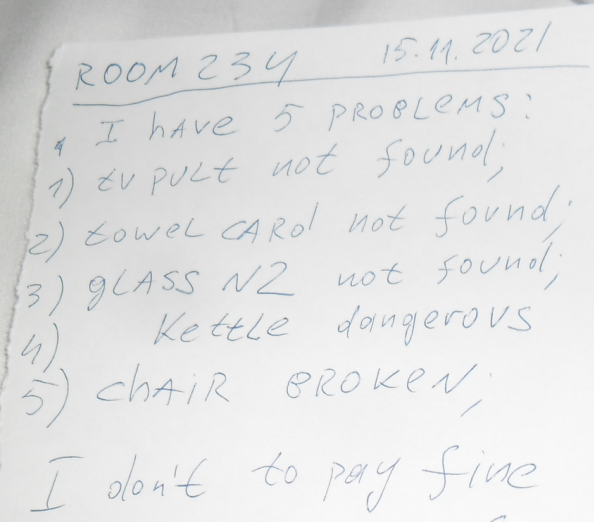 ROOM 234 15.11.2021
I hAve 5 PROBLEMS:
1) tv PULt not found;
2) towel CARd not found;
3) gLASS N2 not found;
4) Kettle dangerous
5) chAiR BROKeN;
I don't to pay fine